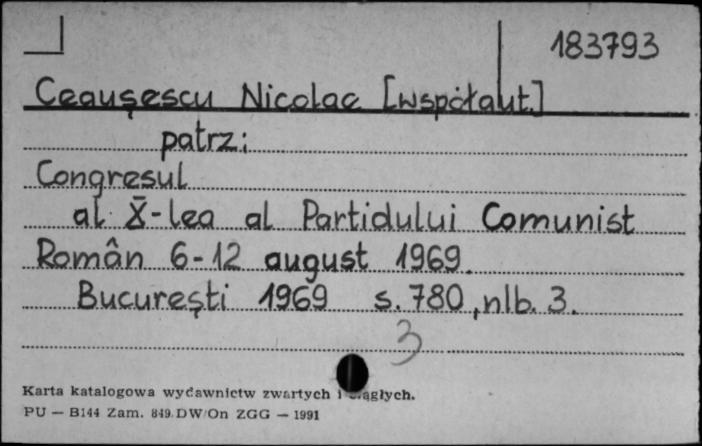 183793
Ceauşescu Nicolae [współaut.]
patrz:
Congresul
al X-lea al Partidului Comunist
Român 6-12 august 1969.
Bucureşti 1969 s. 780, nlb. 3.
3
Karta katalogowa wydawnictw zwartych i ciągłych.
PU — B144 Zam. 849 DW/On ZGG — 1991